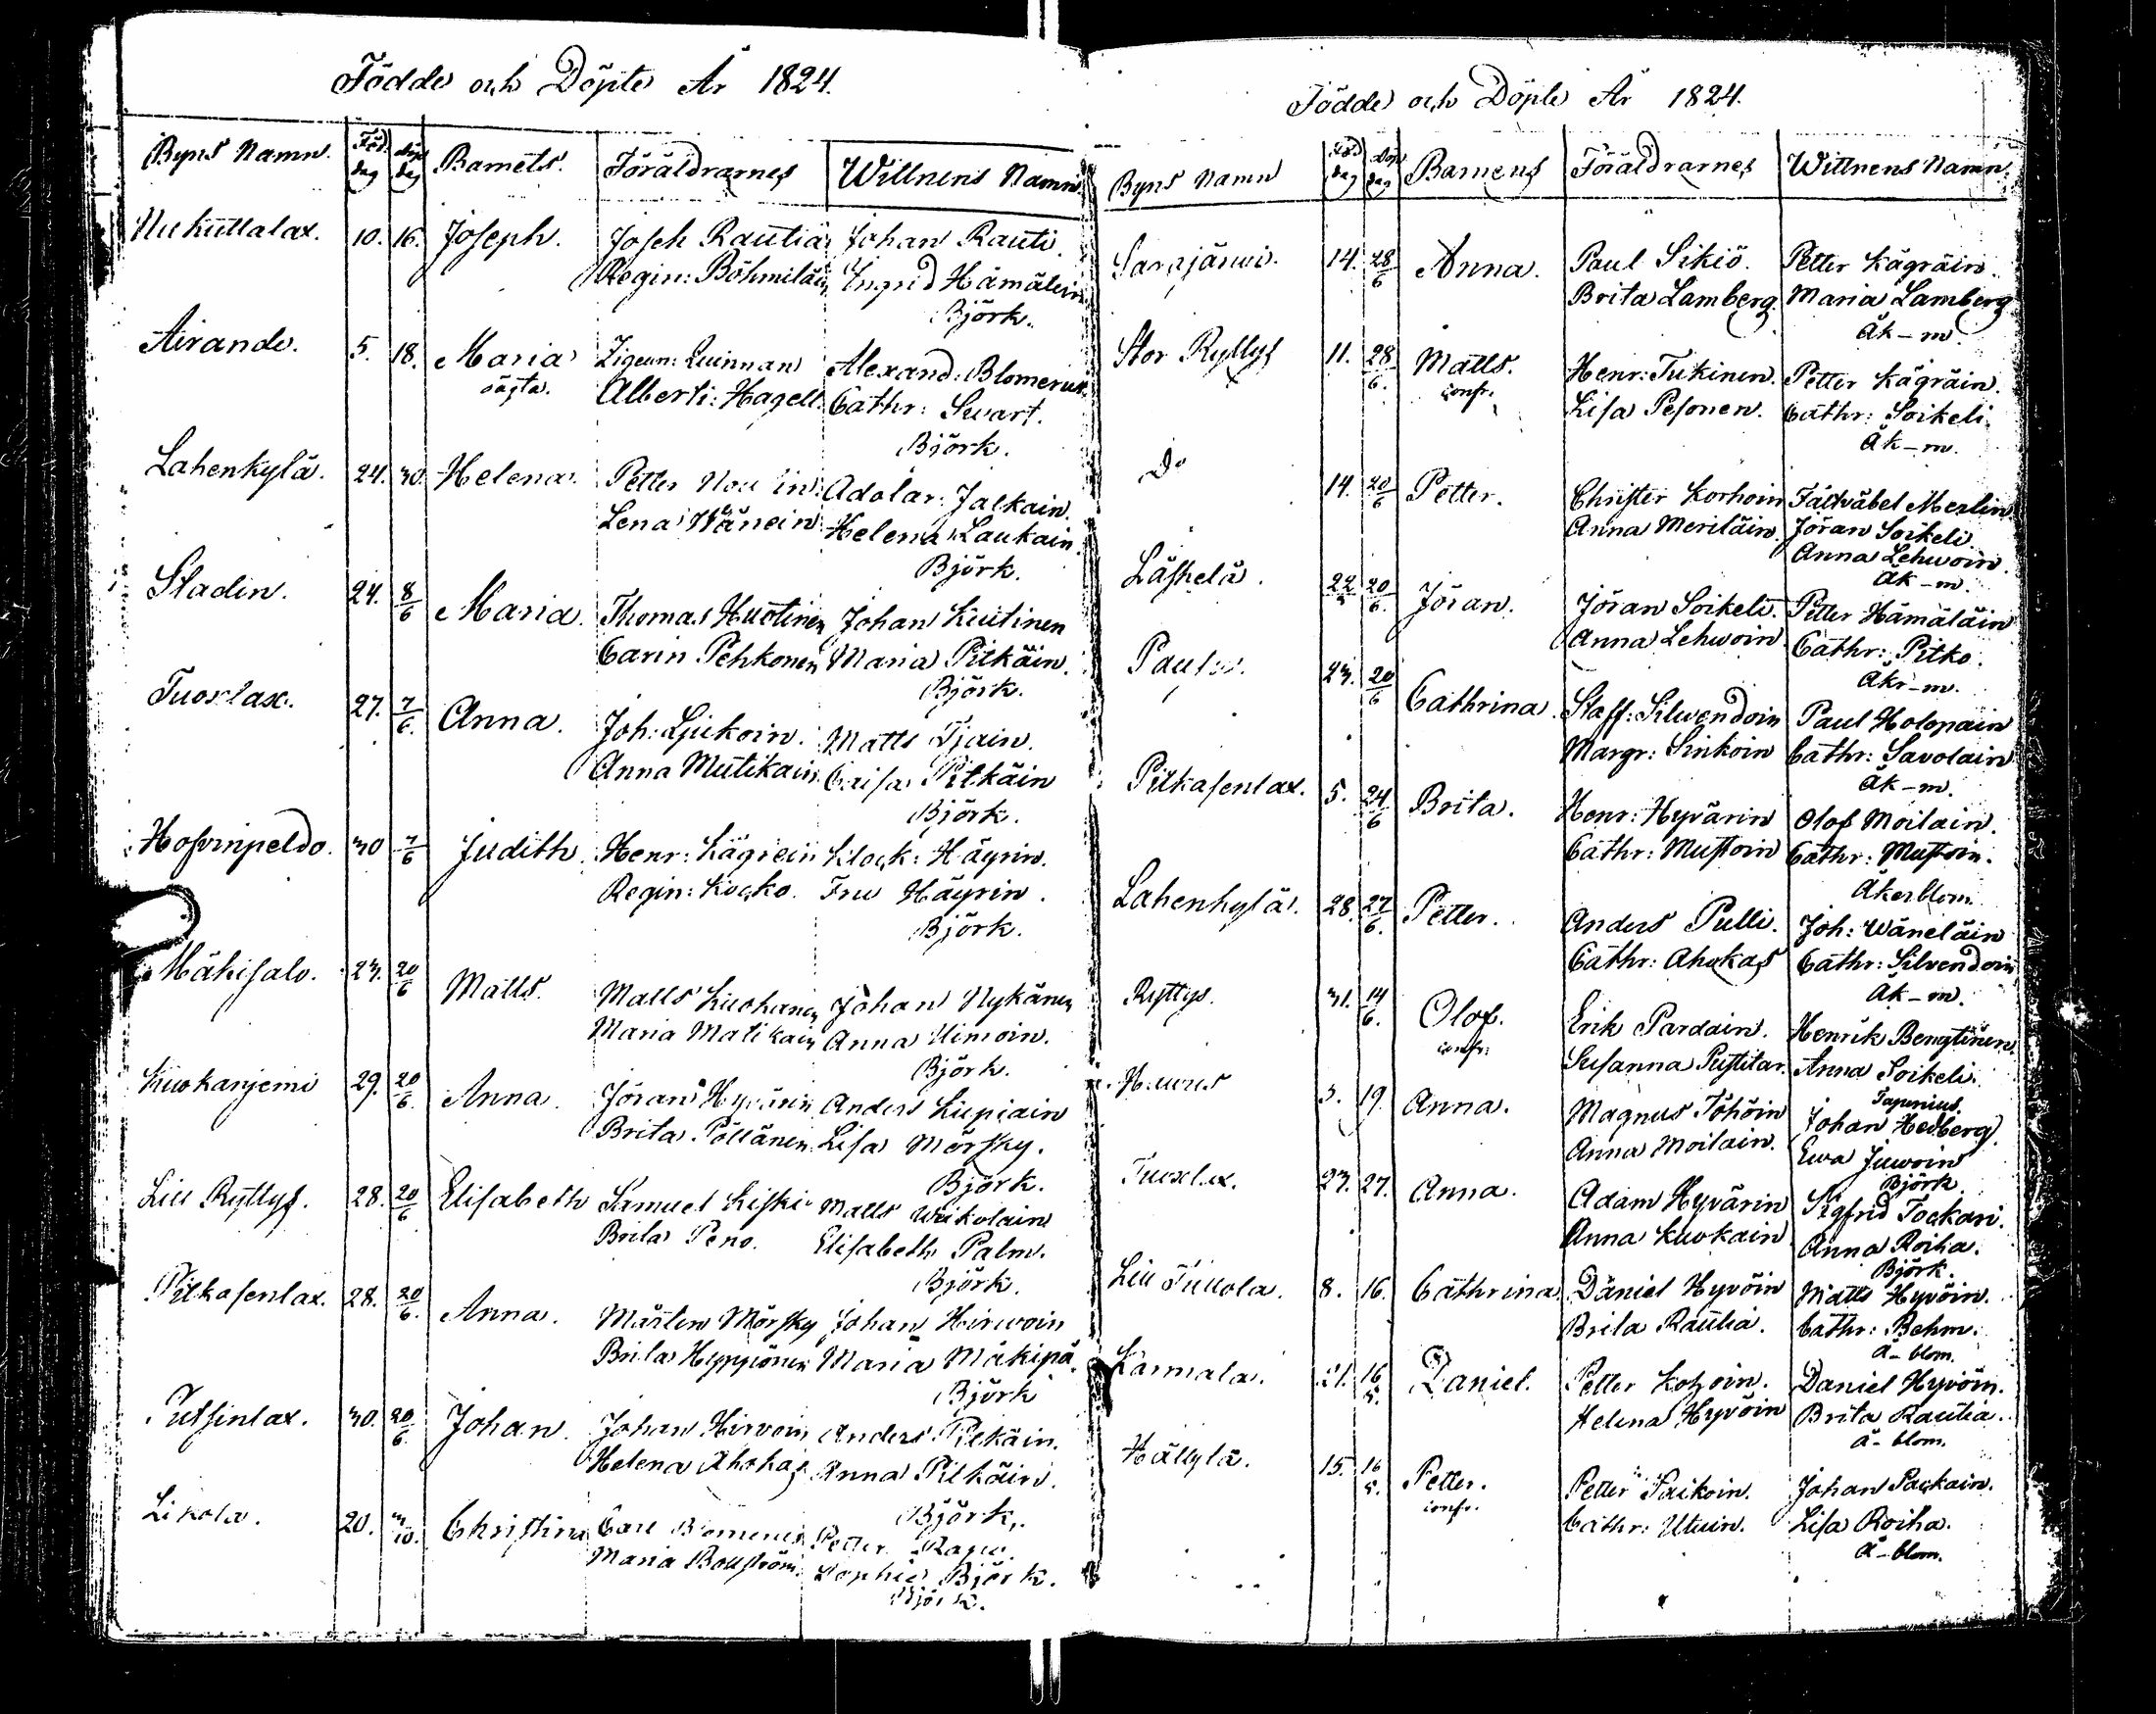 Födde och Döpte År 1824.
Byns Namn. Föd. dag döp dag Barnets. Föräldrarnes Wittnens Namn.
Nukuttalax. 10. 16. Joseph. Joseh Rautia Johan Rauti.
Regin: Böhmiläin Ingrid Hämälein
Björk.
Airande. 5. 18. Maria Zigeun: Quinnan Alexand: Blomerus
oägta. Alberti: Hagell. Cathr: Swart.
Björk.
Lahenkylä. 24. 30. Helena. Petter Adolar: Jalkain.
Lena Wänein Helena Laukain.
Björk.
Stadin. 24. 8/6 Maria. Thomas Huotinen Johan Kuitinen
Carin Pehkonen Maria Pitkäin.
Björk.
Tuoslax. 27. 7/6. Anna. Joh: Ljukoin. Matts Tjain.
Anna Mutikain. Caisa Pitkäin
Björk.
Hofvinpeldo. 30 7/6 Judith. Henr: Kägrein Klock: Häyrin.
Regin: Kocko. Fru Häyrin.
Björk.
Mäkisalo. 23. 20/6 Matts. Matts Liuchanen Johan Nykänen
Maria Matikain Anna Himoin.
Björk.
Kuokanjemi 29. 20/6. Anna. Jöran Hyvärin Anders Kupiain
Brita Pöllänen. Lisa Mörsky.
Björk.
Lill Ryttys. 28. 20/6 Elisabeth Samuel Kiski Matts Wikolain
Brita Peno. Elisabeth Palm.
Björk.
Pitkasenlax. 28. 20/6. Anna. Mårten Mörsky Johan Hirwoin
Brita Hyppönen Maria Mäkipä.
Björk
Putsinlax. 30. 20/6. Johan. Johan Hirvoin Anders Pitkäin.
Helena Ahokas Anna Pitkäin.
Björk.
Likola. 20. 3/10. Christina Carl Blomerus Petter
Maria Bollström. Sophia Björk.
Björk.
Födde och Döpte År 1824.
Byns Namn Föd dag Döp dag Barnens Föräldrarnes Wittnens Namn.
Sarajärwi. 14. 28/6 Anna. Paul Sikiö. Petter Kägräin.
Brita Lamberg. Maria Lamberg
Åk-m.
Stor Ryttys 11. 28/6. Matts. Henr: Tukinen. Petter Kägräin.
confr. Lisa Pesonen. Cathr: Soikeli.
Åk-m.
Do 14. 20/6 Petter. Christer Korhoin Fältväbel Merlin
Anna Meriläin. Jöran Soikeli
Anna Lehwoin.
Åk-m.
Läskelä. 22/5 20/6. Jöran. Jöran Soikeli. Petter Hämäläin
Anna Lehwoin Cathr: Pitko.
Åkr-m.
23. 20/6 Cathrina. Staff: Silwendoin Paul Holopain
Margr: Sinkoin Cathr: Savolain
Åk-m.
Pitkasenlax. 5. 24/6 Brita. Henr: Hyvärin Olof Moilain.
Cathr: Mustoin Cathr: Mustoin.
Åkerblom.
Lahenkylä. 28. 27/6. Petter. Anders Pulli. Joh: Wäneläin
Cathr: Ahokas Cathr: Silvendoin
Åk-m.
Ryttys. 31. 14/6. Olof. Erik Pardain. Henrik Bengtinen.
confr: Susanna Pustilar. Anna Soikeli.
Tapenius.
Huuus 3. 19. Anna. Magnus Töhöin Johan Hedberg
Anna Moilain. Ewa Juwoin
Björk
Tuoslax. 23. 27. Anna. Adam Hyvärin Sigfrid Tockari.
Anna Kuokain Anna Roiha.
Björk.
Lill Tillola. 8. 16. Cathrina Daniel Hyvöin Matts Hyvöin.
Brita Rautia. Cathr: Behm.
Å-blom.
Kärmala. 21. 16/5. Daniel. Petter Kohoin. Daniel Hyvöin.
Helena Hyvöin Brita Rautia.
Å-blom.
Hällylä. 15. 16/5. Petter. Petter Paikoin. Johan Packain.
confr. Cathr: Utuin. Lisa Roiha.
Å-blom.